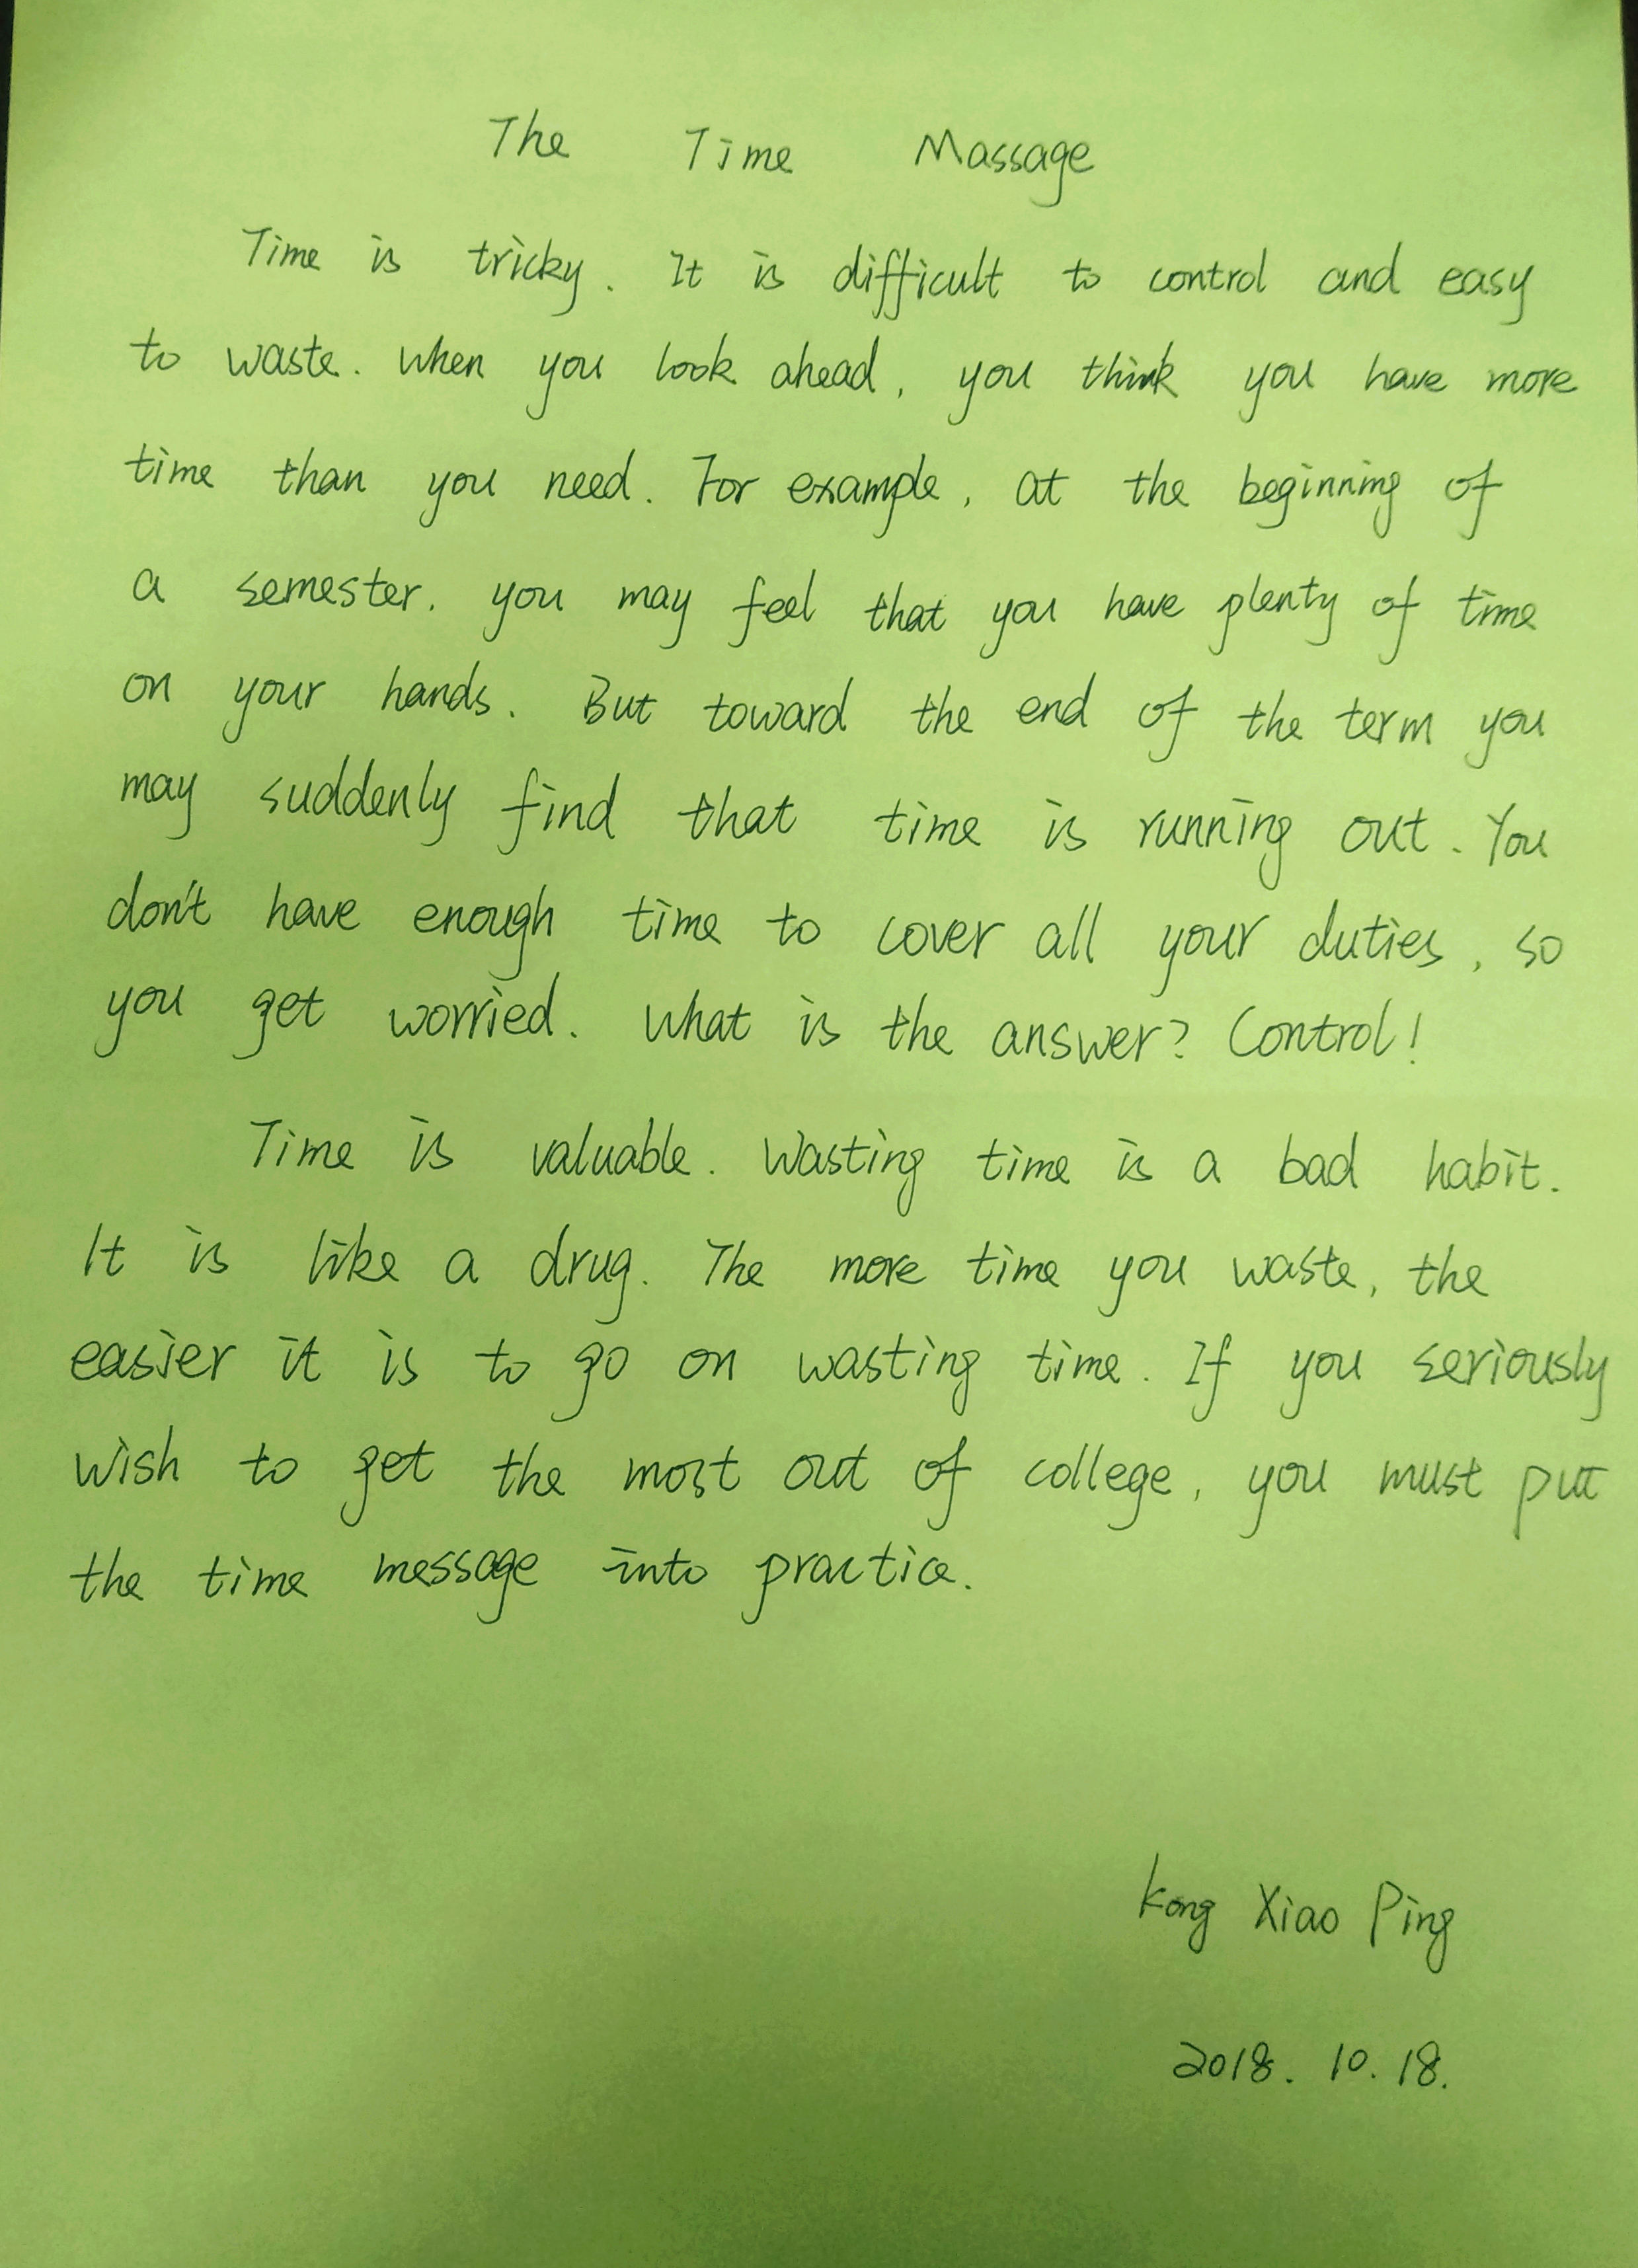 The Time Massage
Time is tricky. It is difficult to control and easy
to waste. When you look ahead, you think you have more
time than you need. For example, at the beginning of
a semester, you may feel that you have plenty of time
on your hands. But toward the end of the term you
may suddenly find that time is running out. You
don't have enough time to cover all your duties, so
you get worried. What is the answer? Control!
Time is valuable. Wasting time is a bad habit.
It is like a drug. The more time you waste, the
easier it is to go on wasting time. If you seriously
wish to get the most out of college, you must put
the time message into practice.
Kong Xiao Ping
2018. 10. 18.